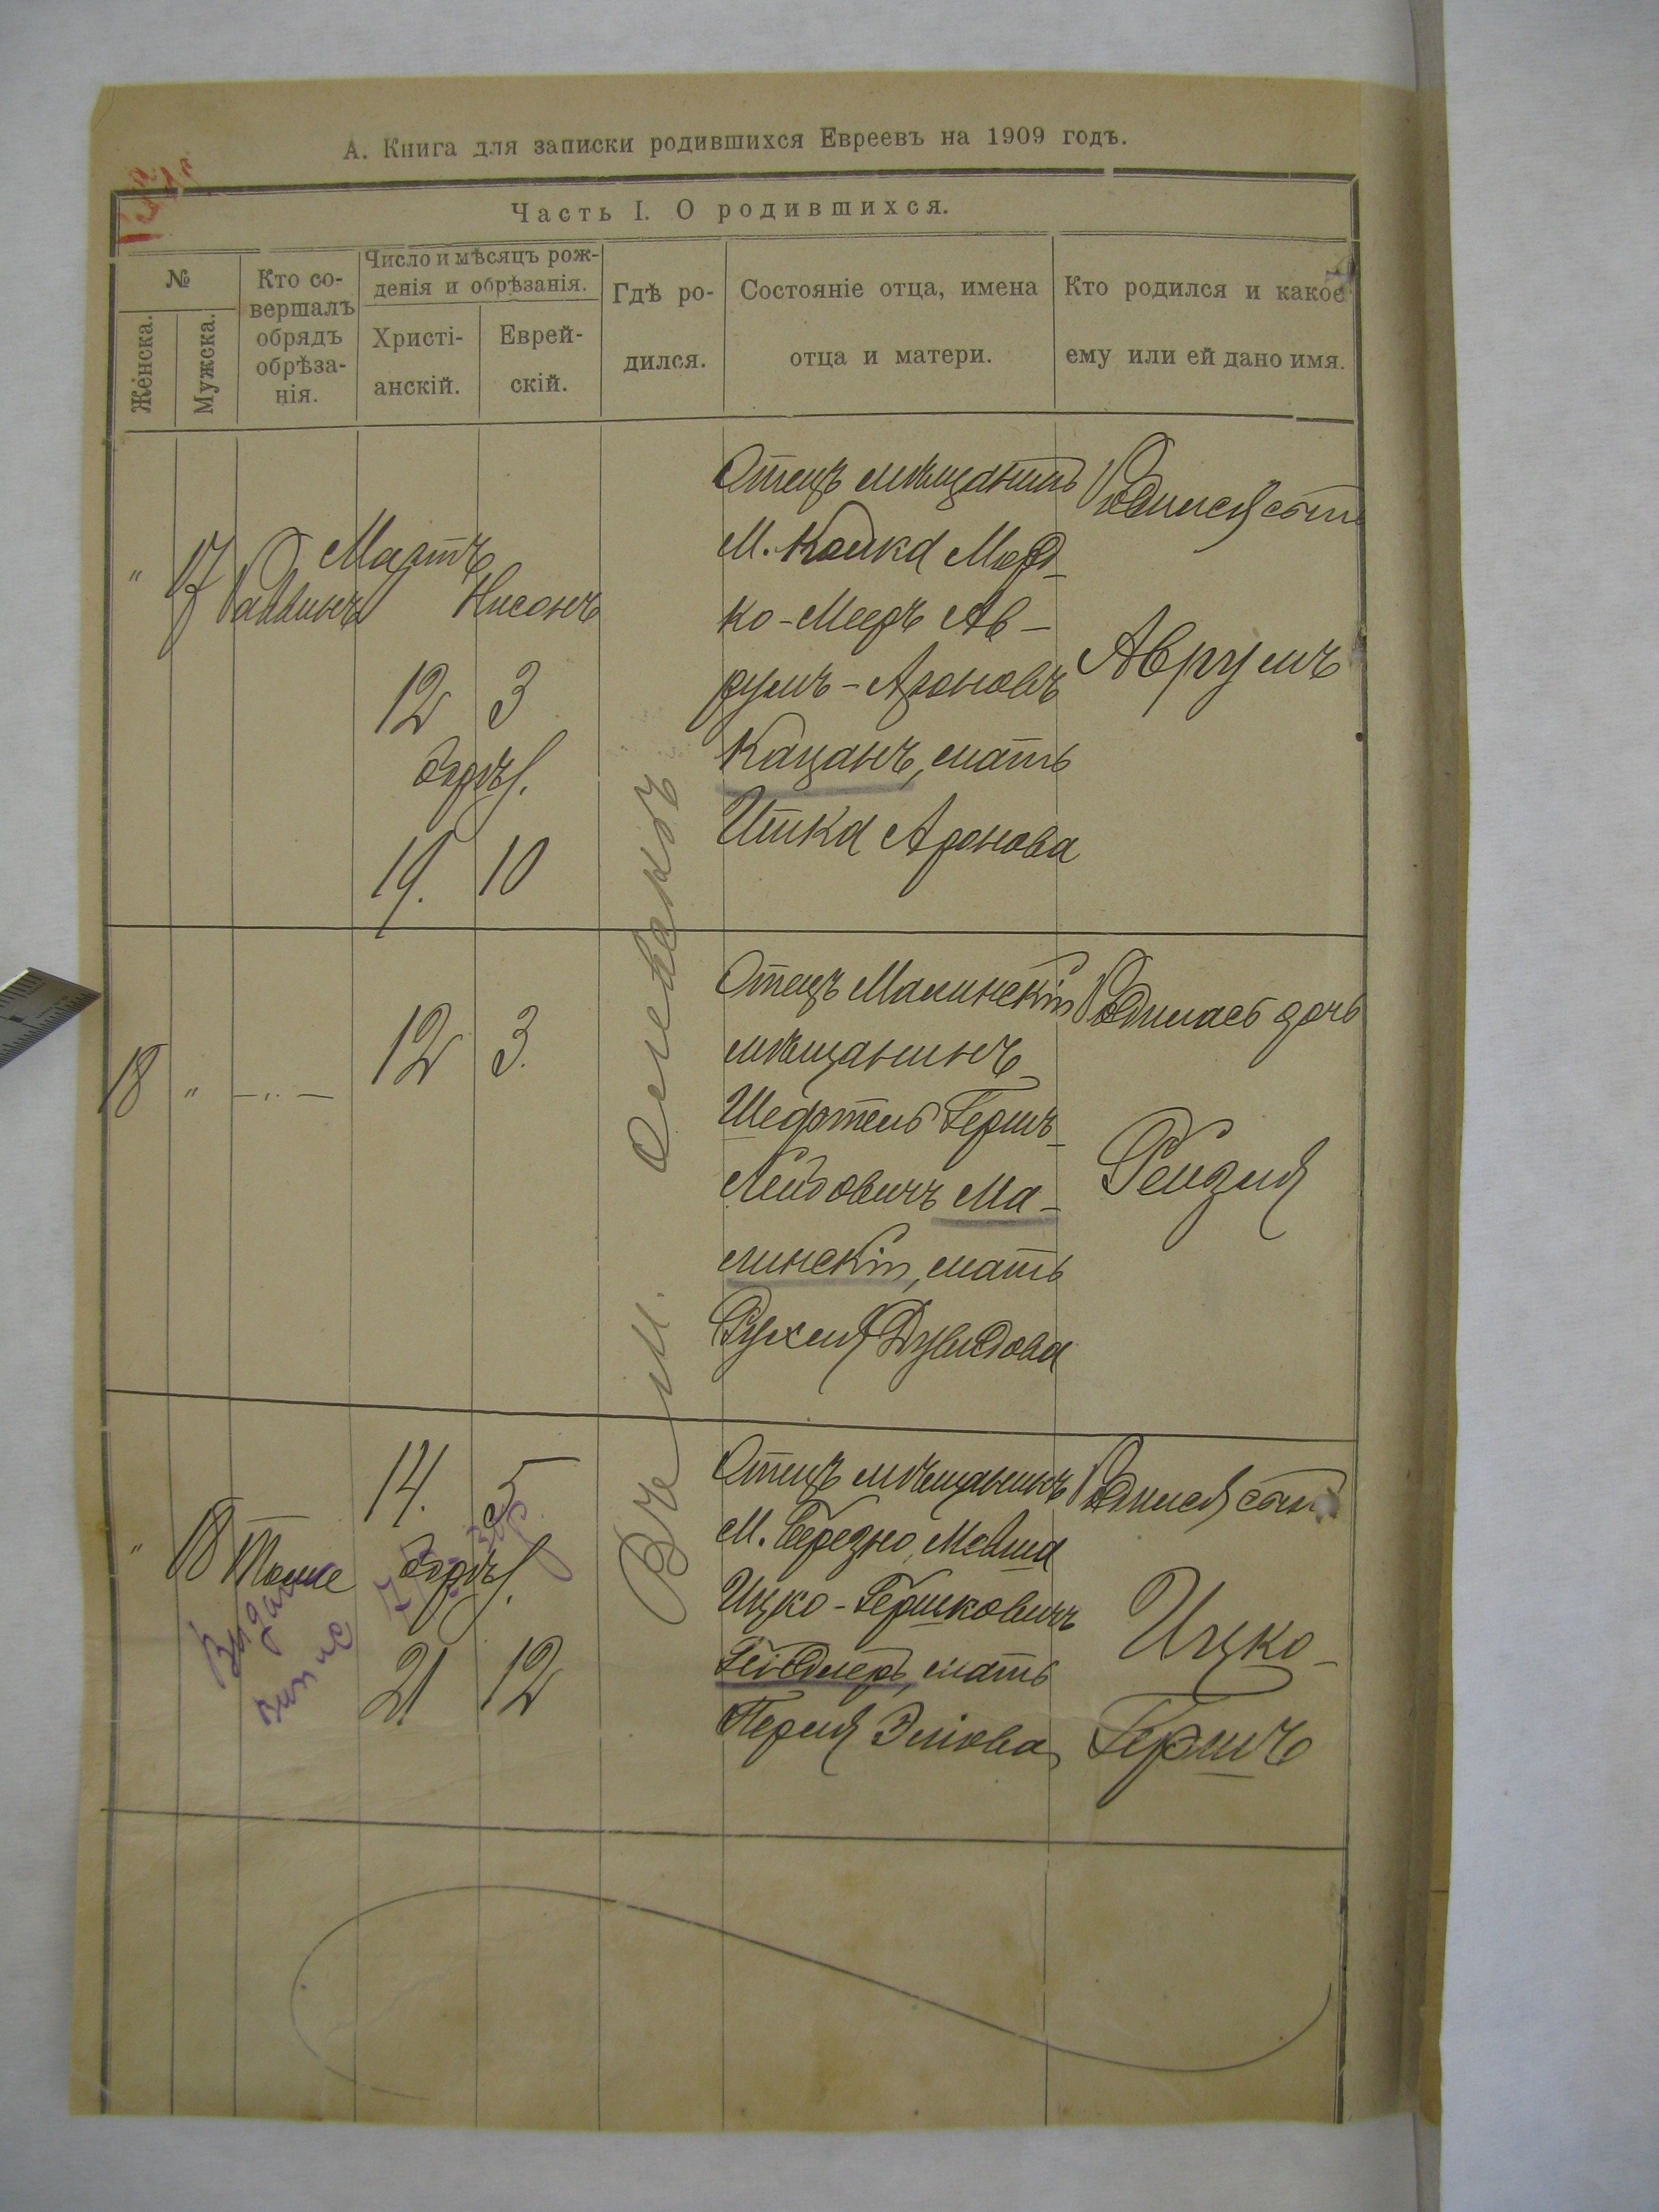 А. Книга для записки родившихся Евреевъ на 1909 годъ.
Часть I. О родившихся.
№
Женска.
Мужска.
Кто со-
вершалъ
обрядъ
обрѣза-
нія.
Число и мѣсяцъ рож-
денія и обрѣзанія.
Христі-
анскій.
Еврей-
скій.
Гдѣ ро-
дился.
Состояніе отца, имена
отца и матери.
Кто родился и какое
ему или ей дано имя.
"
17
Раввинъ
Мартъ
Нисонъ
12
3
обрѣз.
19.
10
Въ м. Олевскѣ
Отецъ мѣщанинъ
М. Колка Морд-
ко-Мееръ Ав-
румъ-Ароновъ
Кацанъ, мать
Итка Аронова
Родился сынъ
Аврумъ
18
"
— „ —
12
3.
Отецъ Малинскій
мѣщанинъ
Шефтель Гершъ-
Лейбовичъ Ма-
линскій, мать
Рухля Дувидова
Родилась дочь
Рейзля
"
18
Тоже
14.
5
обрѣз.
21
12
Отецъ мѣщанинъ
М. Березно Мовша
Ицко-Гершковичъ
мать
Перля Элiова
Родился сынъ
Ицко-
Гершъ